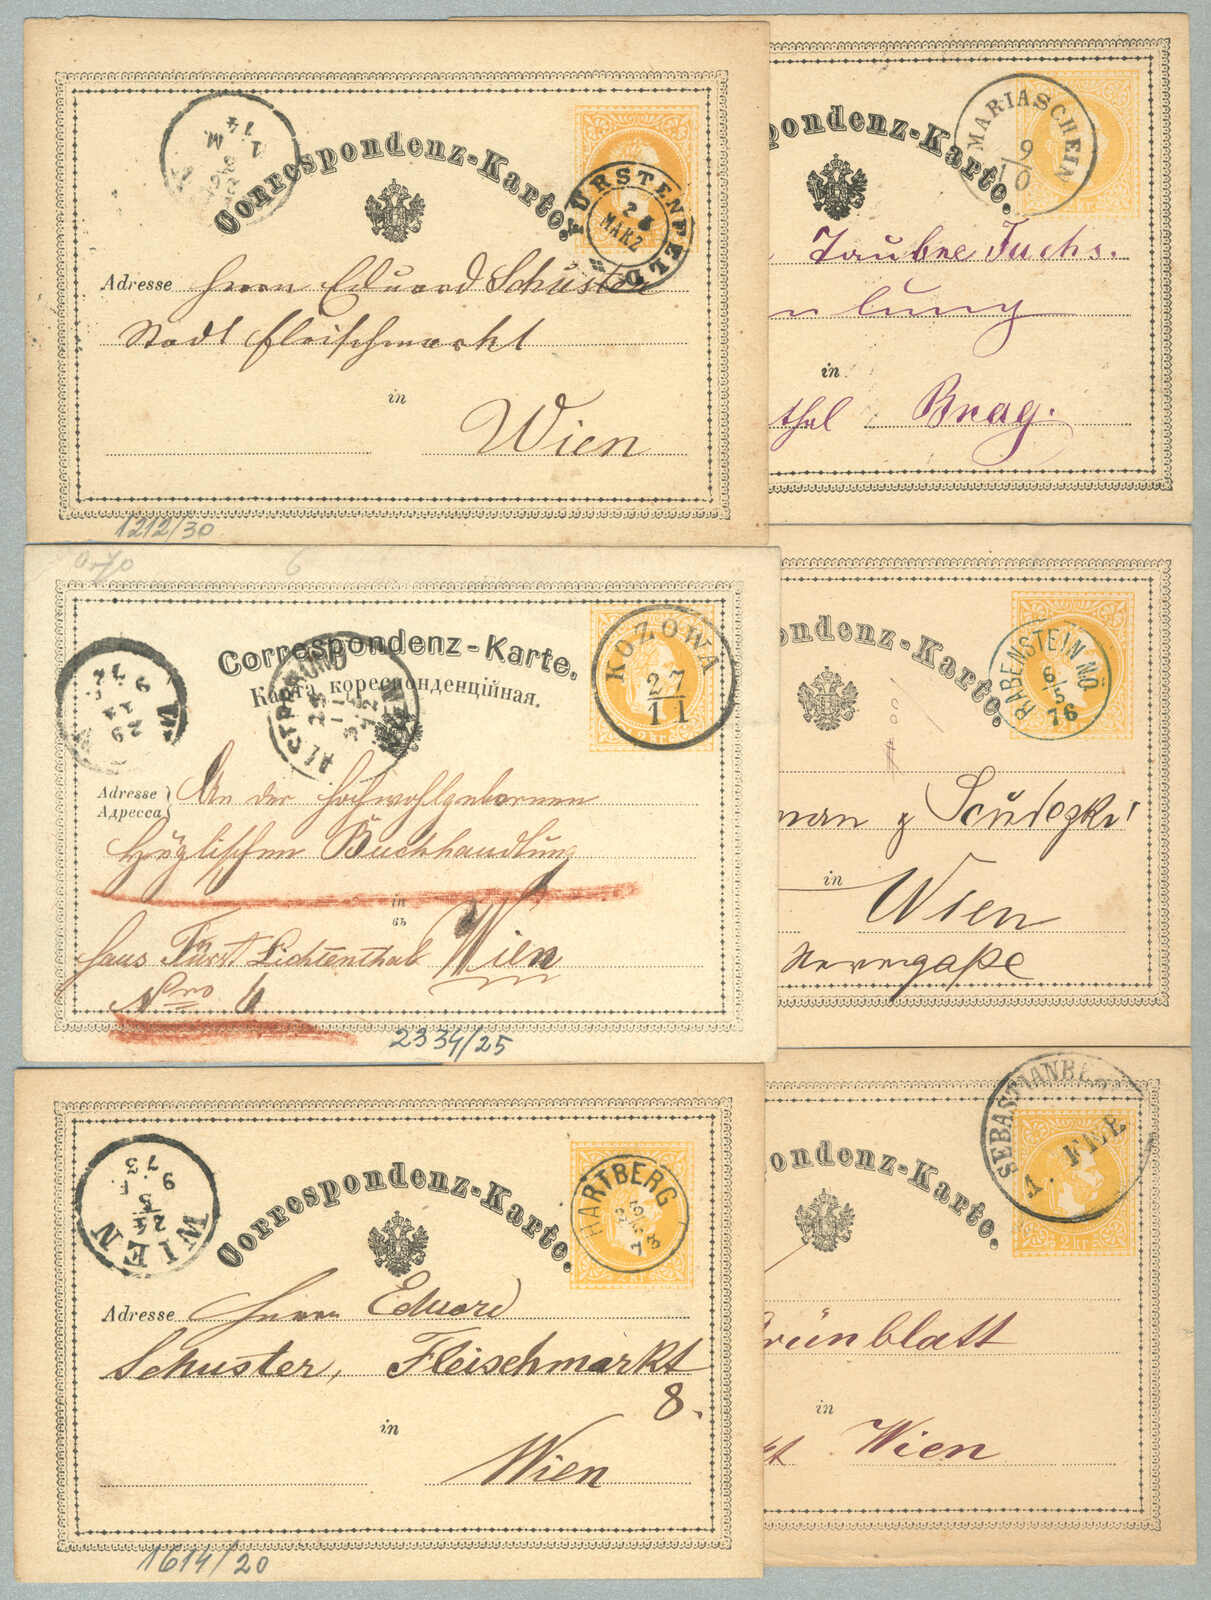 Correspondenz-Karte.
FÜRSTENFELD
MÄRZ
Adresse Herrn Eduard Schuster
Stadt Fleischmarkt
in
Wien
1212/30
pondenz-Karte.
MARIASCHEIN
9/10
Taubne Fuchs.
lung
in
thal Prag.
6
Correspondenz-Karte.
Карта кореспонденційная.
KOZOWA
27/11
2 kr.
29
9
72
Adresse An der hochwohlgebornen
Адресса
Hüglischen Buchhandlung
in
въ
Haus Fürst Lichtenthal Wien
Nro 6
2334/25
ondenz-Karte.
RABENSTEIN NÖ
6/5
76
in
Wien
Correspondenz-Karte.
WIEN
24
3
9
73
HARTBERG
73
2 kr.
Adresse Herrn Eduard
Schuster, Fleischmarkt
8.
in
Wien
1614/20
ondenz-Karte.
1. FEB
2 kr.
Grünblatt
in
Wien